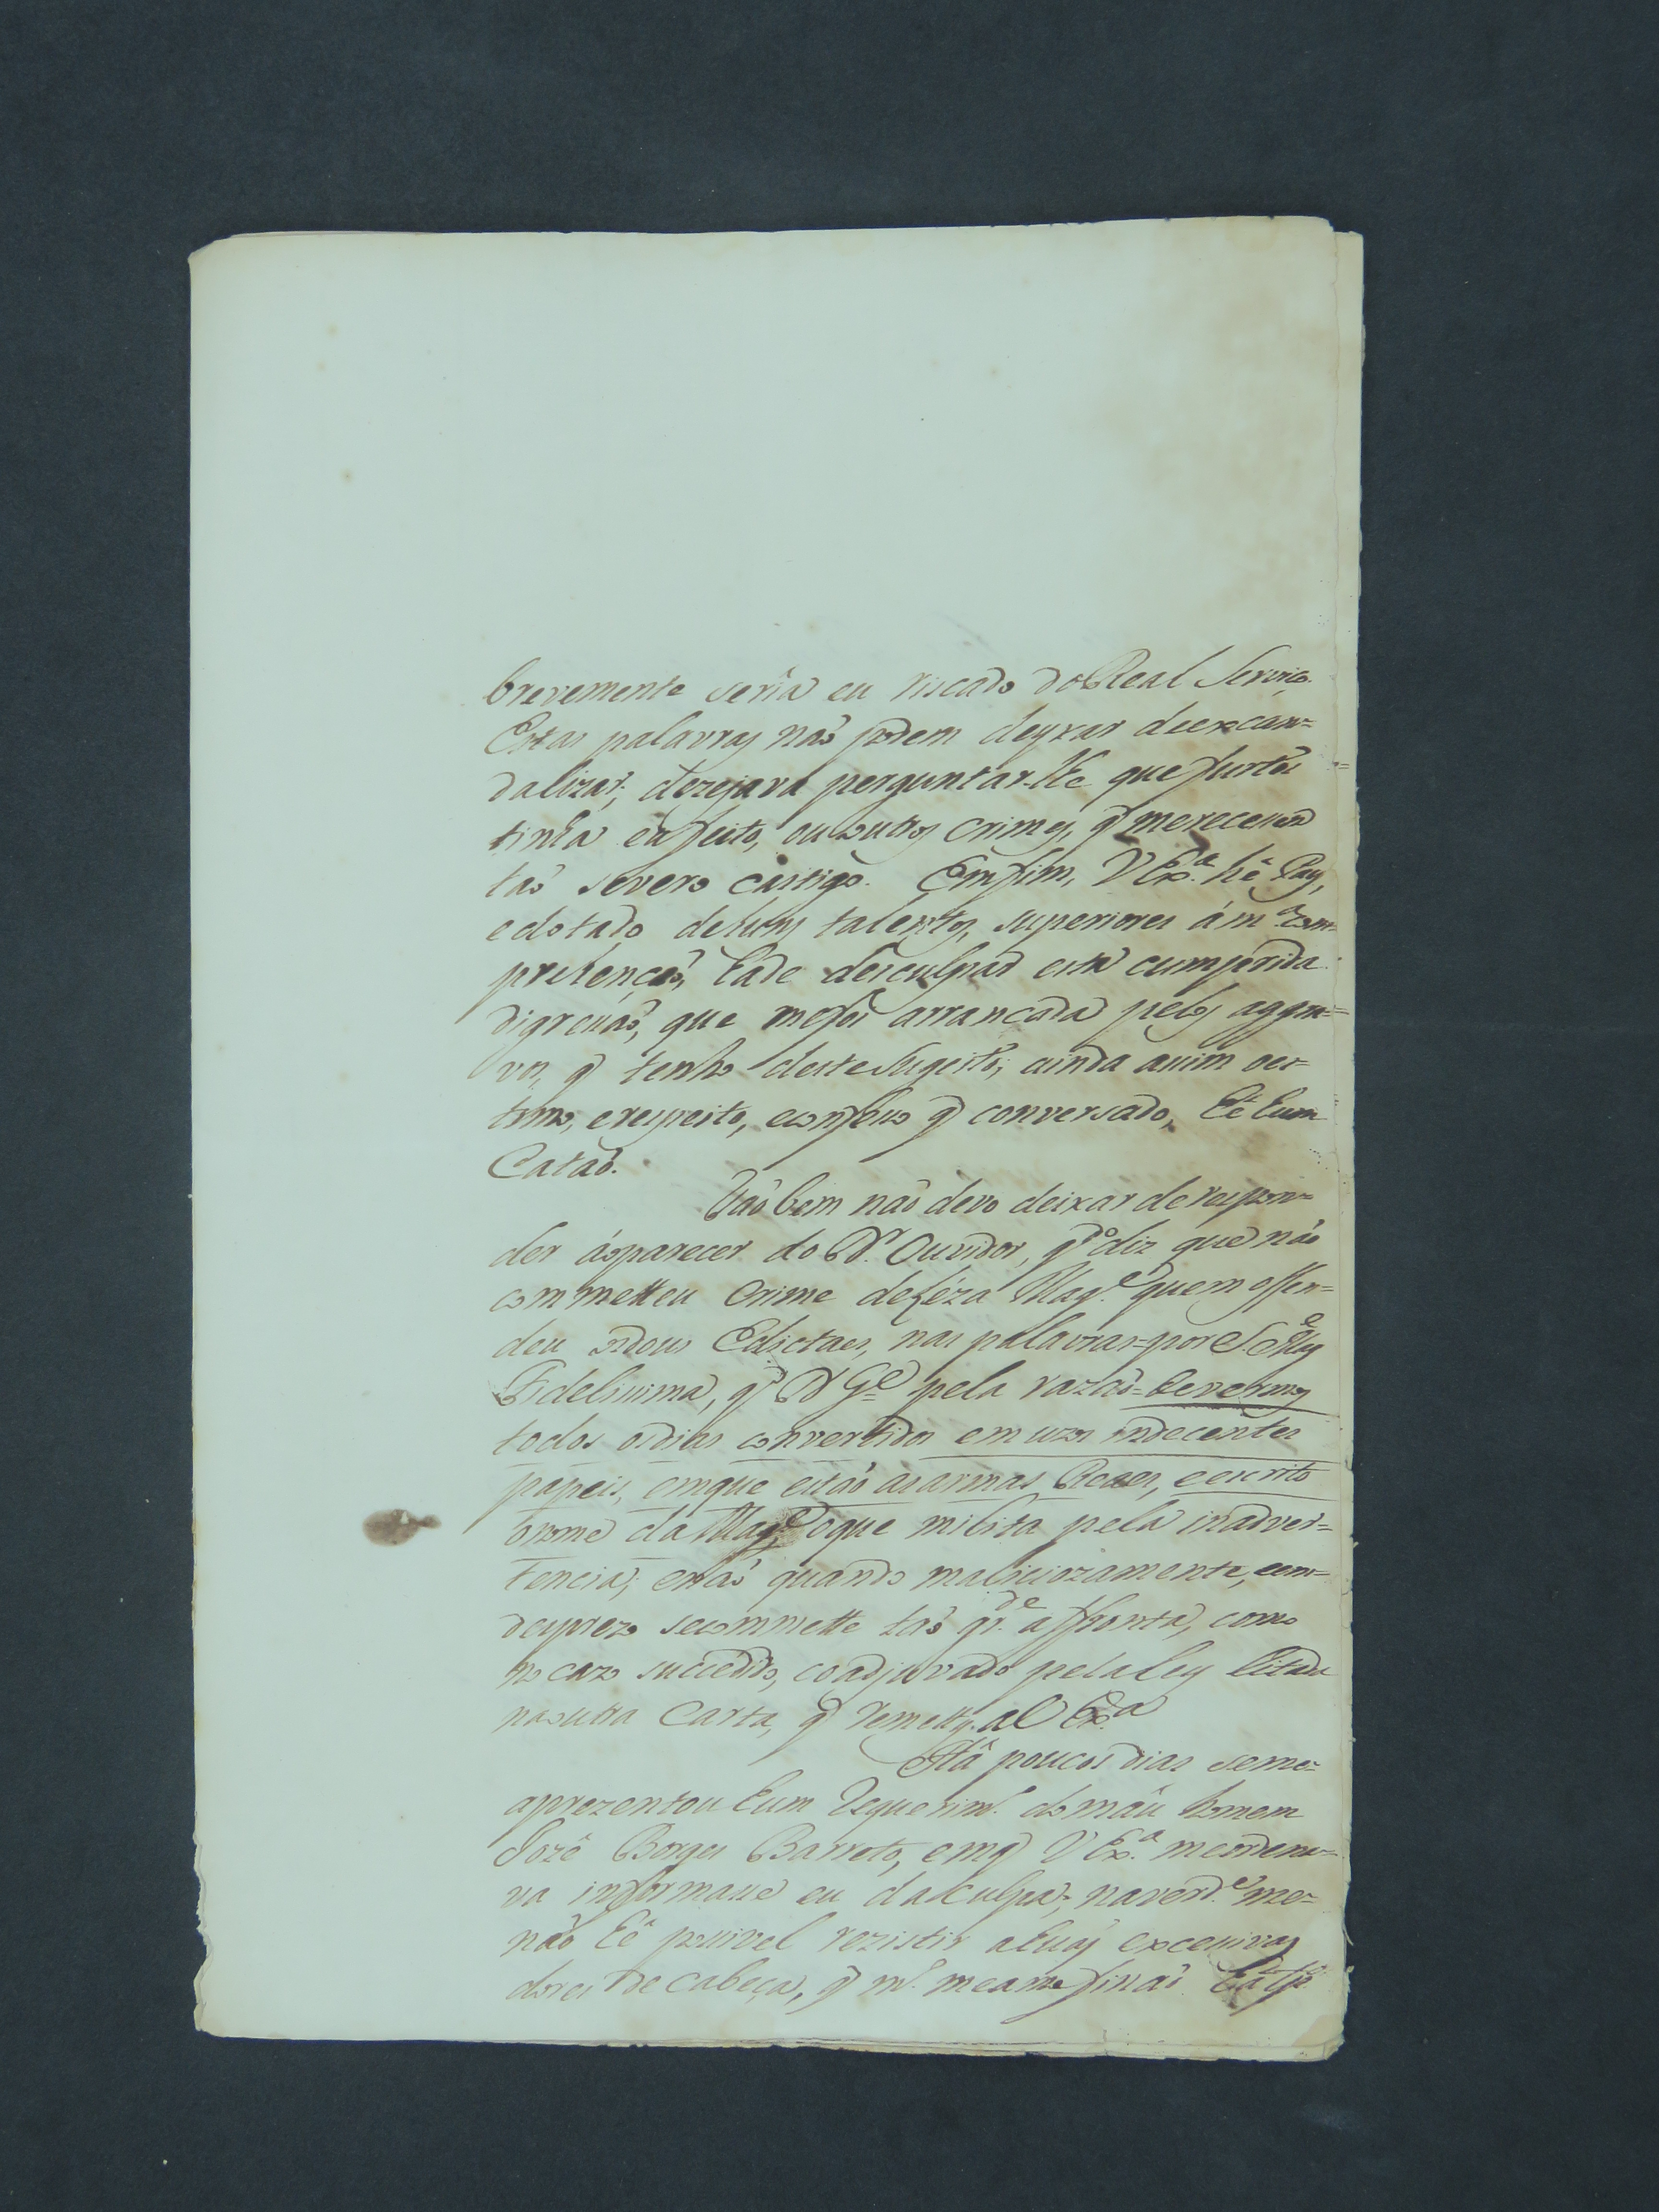 brevemente seria eu riscado do Real Serviço.
Estas palavras naõ podem deyxar deexcan=
dalizar; dezejava perguntar-lhe que furtos
tinha eu feito, ou outros crimes, q̃ merecessem
taõ severo castigo. Emfim, V Ex.ª hé Pay,
edotado dehuns talentos, superiores ám.ª com=
prehençaõ, hade desculpar esta cumprida
digressaõ, que mefoi arrancada pelos aggra=
vos, q̃ tenho deste Sugeito; ainda assim oes=
timo, erespeito, econfesso q̃ conversado, hé hum
Cataõ.
Taõbem naõ devo deixar derespon=
der áoparecer do D.r Ouvidor, q.do diz que naõ
commetteu Crime deLéza Mag.e quem offen=
deu osdous Edictaes, nas palavras=por S. Mag.e
Fidelissima, q̃ D G.e pela razaõ= devermos
todos osdias convertidos em uzos indecentes
papeis, emque estaõ as armas Reaes, eescrito
onome da Mag.e, oque milita pela inadver=
tencia; enaõ quando maliciozamente, eem=
desprezo secommette taõ gr.de affronta, como
no cazo succedido, coadjuvado pelaley citada
naoutra Carta, q̃ remetto aV Ex.ª
Há poucos dias seme=
aprezentou hum Requerim.to do máu homem
Jozé Borges Barreto, emq̃ V Ex.ª meordena=
va informasse eu da Culpa; naverd.e me=
naõ hé possivel rezistir ahuas excessivas
dores de cabeça, q̃ m.to meamofinaõ